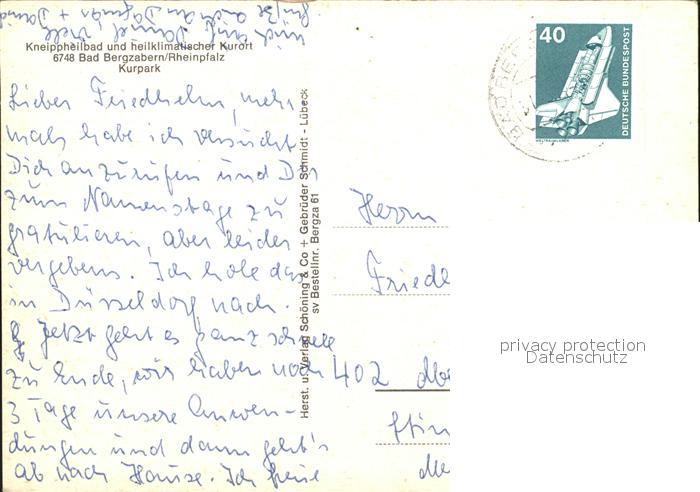 Kneippheilbad und heilklimatischer Kurort
6748 Bad Bergzabern/Rheinpfalz
Kurpark
Lieber Friedhelm, mehr-
mals habe ich versucht
Dich anzurufen und Dir
zum Namenstage zu
gratulieren, aber leider
vergebens. Ich hole das
in Düsseldorf nach.
Jetzt geht es ganz schnell
zu Ende, wir haben noch
3 Tage unsere Anwen-
dungen und dann geht's
ab nach Hause. Ich freue
Herst. u. Verlag Schöning & Co + Gebrüder Schmidt - Lübeck
sv Bestellnr. Bergza 61
40
DEUTSCHE BUNDESPOST
WELTRAUMLABOR
Herrn
Friedl
402
privacy protection
Datenschutz